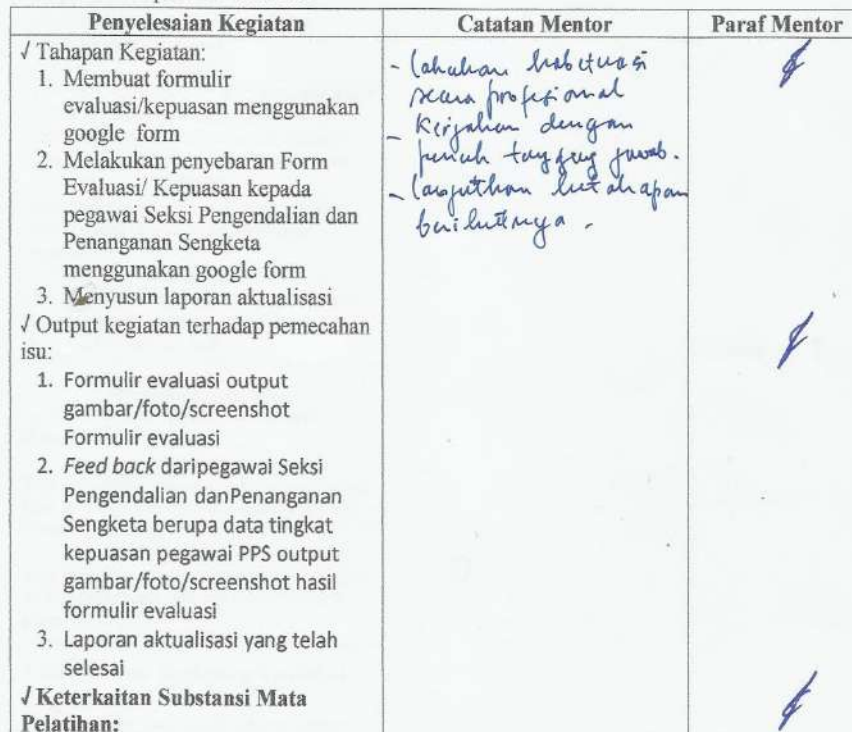 Penyelesaian Kegiatan
Catatan Mentor
Paraf Mentor
√ Tahapan Kegiatan:
1. Membuat formulir
evaluasi/kepuasan menggunakan
google form
2. Melakukan penyebaran Form
Evaluasi/ Kepuasan kepada
pegawai Seksi Pengendalian dan
Penanganan Sengketa
menggunakan google form
3. Menyusun laporan aktualisasi
√ Output kegiatan terhadap pemecahan
isu:
1. Formulir evaluasi output
gambar/foto/screenshot
Formulir evaluasi
2. Feed back daripegawai Seksi
Pengendalian danPenanganan
Sengketa berupa data tingkat
kepuasan pegawai PPS output
gambar/foto/screenshot hasil
formulir evaluasi
3. Laporan aktualisasi yang telah
selesai
√ Keterkaitan Substansi Mata
Pelatihan:
- Lakukan habituasi
secara profesional
- Kerjakan dengan
penuh tanggung jawab.
- Lanjutkan ke tahapan
berikutnya.